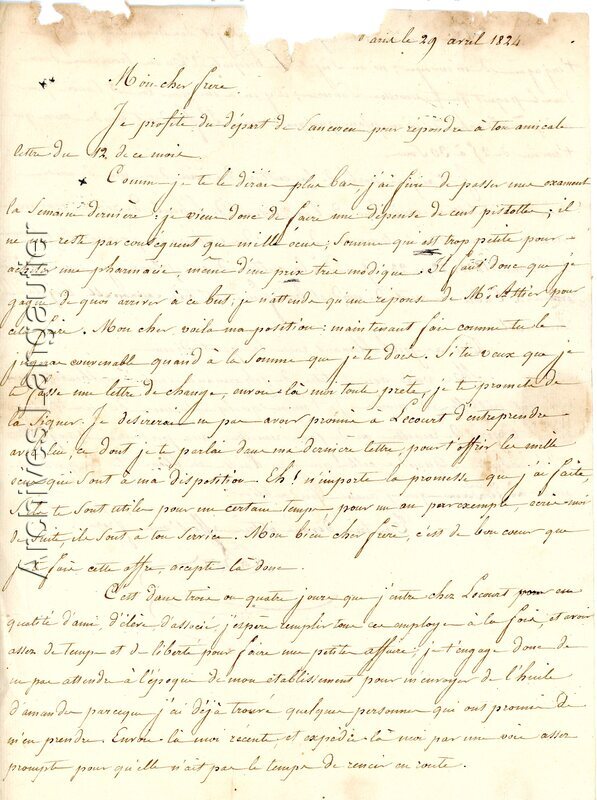 Paris le 29 avril 1824
Mon cher frère.
Je profite du départ de Sancereu pour répondre à ton amicale
lettre du 12 de ce mois.
Comme je te le dirai plus bas j'ai fini de passer mes examens
la Semaine dernière : je viens donc de faire une dépense de cent pistolles ; il
ne reste par conséquent que mille écus ; Somme qui est trop petite pour
acheter une pharmacie, même d'un prix très modique. Il faut donc que je
gagne de quoi arriver à ce but ; je n'attends qu'une réponse de Mr. pour
cela faire. Mon cher voila ma position : maintenant fais comme tu le
jugeras convenable quand à la Somme que je te dois. Si tu veux que je
te fasse une lettre de change, envoie-là moi toute prête, je te promets de
la Signer. Je désirerais ne pas avoir promis à Lecourt d'entreprendre
avec lui ce dont je te parlai dans ma dernière lettre, pour t'offrir les mille
écus qui Sont à ma disposition. Eh ! n'importe la promesse que j'ai faite
S'ils te Sont utiles pour un certain temps pour un an par exemple écris-moi
de Suite ils Sont à ton Service. Mon bien cher frère, c'est de bon coeur que
je te fais cette offre, accepte là donc.
C'est dans trois ou quatre jours que j'entre chez Lecourt pour en
qualité d'ami, d'élève d'associé j'espère remplir tous ces emplois à la fois, et avoir
assez de temps et de liberté pour faire mes petites affaires : je t'engage donc de
ne pas attendre à l'époque de mon établissement pour m'envoyer de l'huile
d'amandes parceque j'ai déjà trouvé quelques personnes qui ons promis de
m'en prendre. Envoie-là moi récente, et expédie-là moi par une voie assez
prompte pour qu'elle n'ait pas le temps de rancir en route.
Archives Langautier